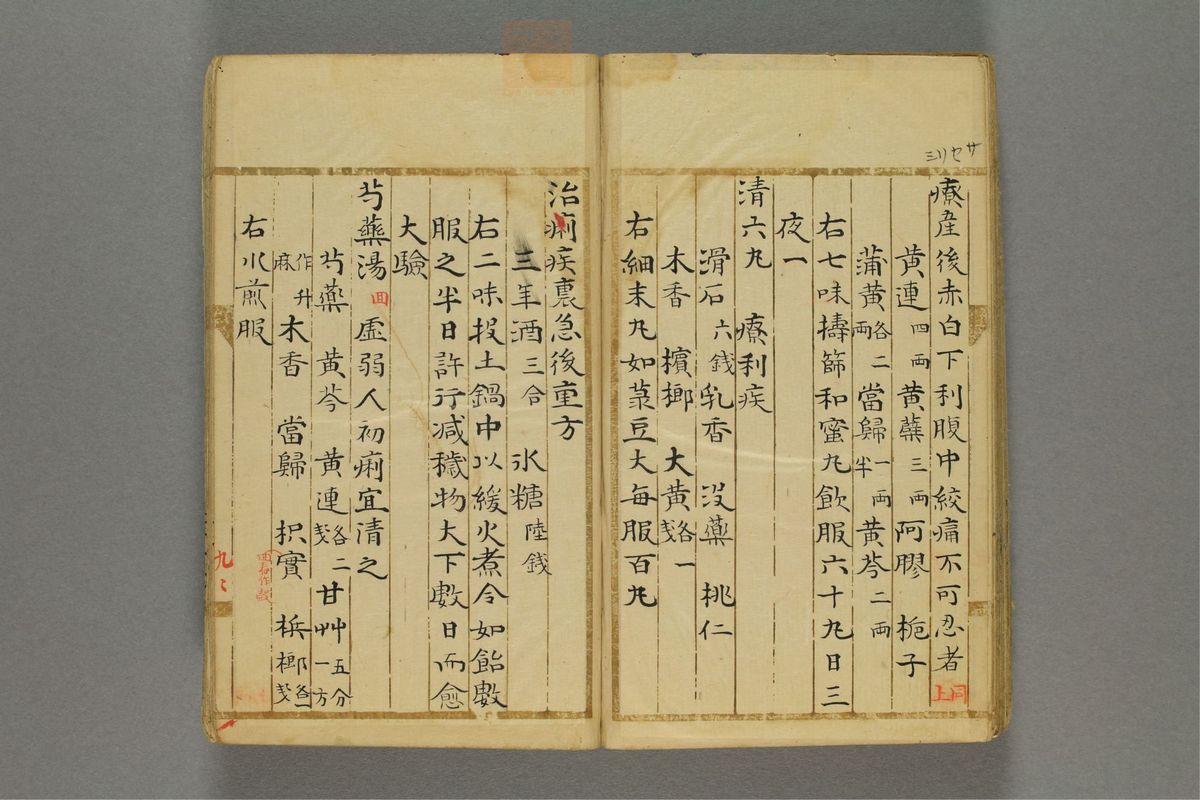 サセリミ
療産後赤白下利腹中絞痛不可忍者 同上
黄連四両 黄蘗三両 阿膠 梔子
蒲黄各二両 當歸一両半 黄芩二両
右七味擣篩和蜜丸飲服六十丸日三
夜一
清六丸 療利疾
滑石六錢 乳香 没藥 桃仁
木香 檳榔 大黄各一戔
右細末丸如菉豆大每服百丸
治痢疾裏急後重方
三年酒三合 氷糖陸錢
右二味投土鍋中以緩火煮令如飴數
服之半日許行減穢物大下數日而愈
大驗
芍藥湯 回 虛弱人初痢宜清之
芍藥 黄芩 黄連各二戔 甘艸五分一方
作升麻 木香 當歸 枳實 檳榔各一戔
右水煎服
九〻